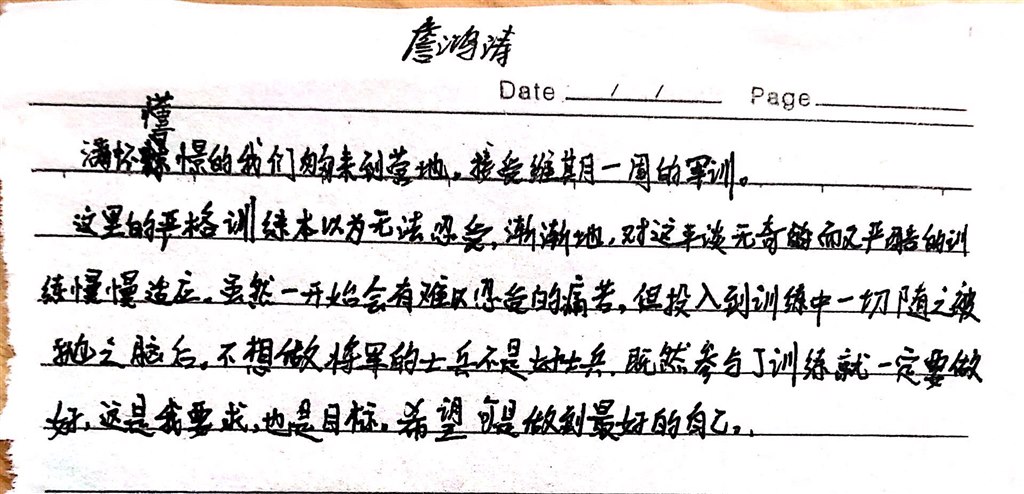 詹鸿涛
Date / / Page
憧
满怀憬的我们来到营地，接受维其月一周的军训。
这里的严格训练本以为无法忍受，渐渐地，对这平淡无奇的而又严酷的训
练慢慢适应。虽然一开始会有难以忍受的痛苦，但投入到训练中一切随之被
抛之脑后。不想做将军的士兵不是好士兵，既然参与了训练就一定要做
好，这是我要求，也是目标，希望可是做到最好的自己。